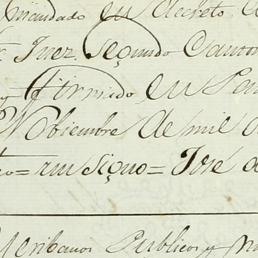 mandado en decreto
Juez Segundo
y firmado en
Nobiembre de mil
= un signo = José de
Escribanos Publicos y